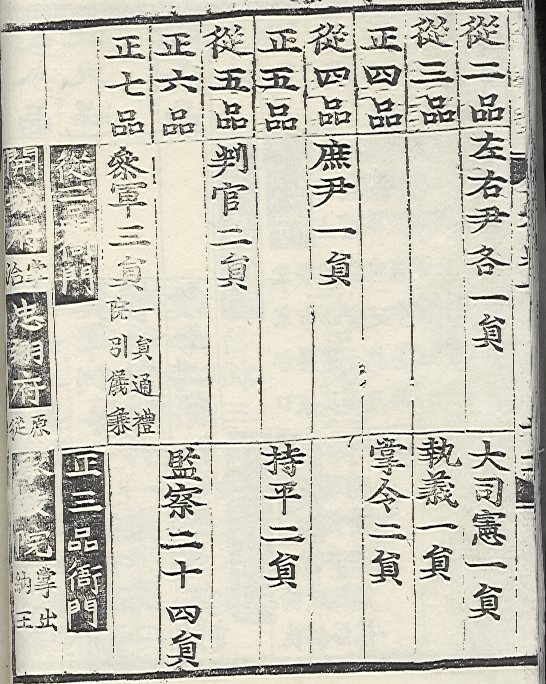 從二品 左右尹各一貟 大司憲一貟
從三品 執義一貟
正四品 掌令二貟
從四品 庶尹一貟
正五品 持平二貟
從五品 判官二貟
正六品 監察二十四貟
正七品 叅軍三貟 一貟通禮院引儀兼
從二品衙門 正三品衙門
開城府 掌治 忠翊府 原從 承政院 掌出納王